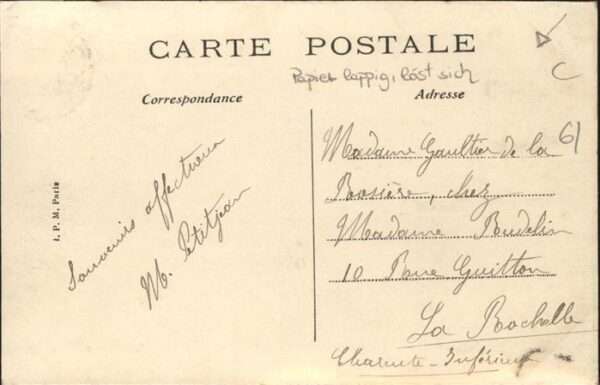 CARTE POSTALE
Papier lappig, löst sich
C
Correspondance
Adresse
61
I. P. M. Paris
Souvenirs affectueux
M. Petitjean
Madame Gaultier de la
Rosière, chez
Madame Budelin
10 Rue Guitton
La Rochelle
Charente-Inférieure